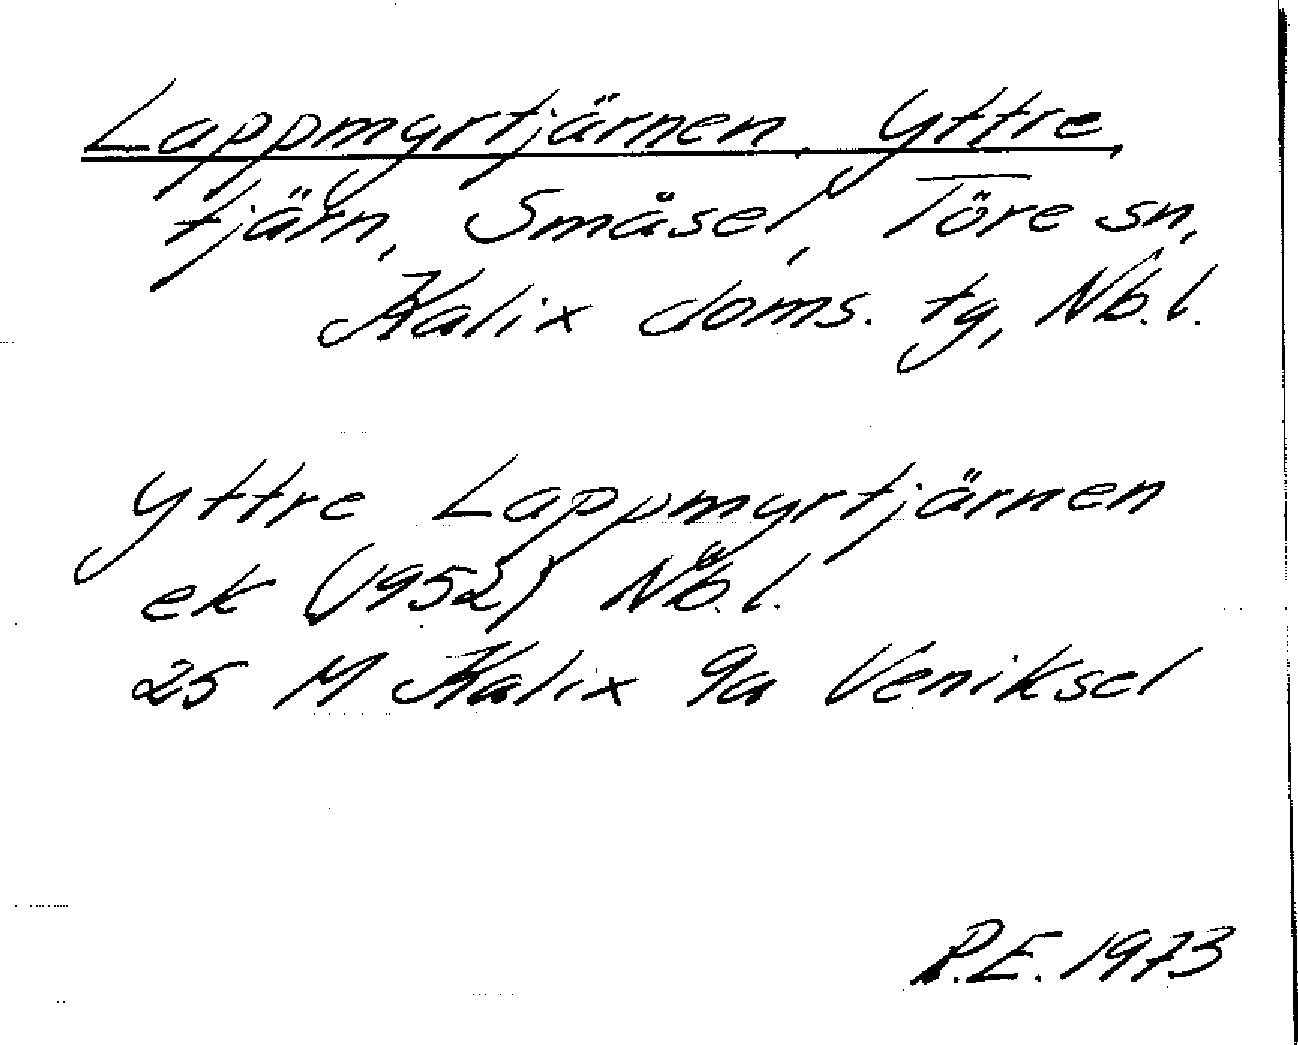 Lappmyrtjärnen, Yttre,
tjärn, Småsel, Töre sn,
Kalix doms. tg, Nb. l.
Yttre Lappmyrtjärnen
ek (1952) Nb. l.
25 M Kalix 9a Veniksel
P.E. 1973